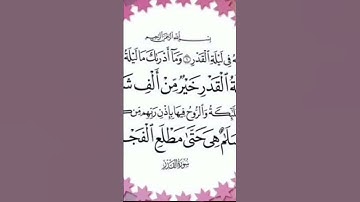 بِسْمِ اللَّهِ الرَّحْمَٰنِ الرَّحِيمِ
هُ فِي لَيْلَةِ الْقَدْرِ ۝١ وَمَا أَدْرَاكَ مَا لَيْلَةُ
ةُ الْقَدْرِ خَيْرٌ مِّنْ أَلْفِ شَ
ئِكَةُ وَالرُّوحُ فِيهَا بِإِذْنِ رَبِّهِم مِّن كُ
سَلَامٌ هِيَ حَتَّىٰ مَطْلَعِ الْفَجْ
سُورَةُ الْقَدْرِ